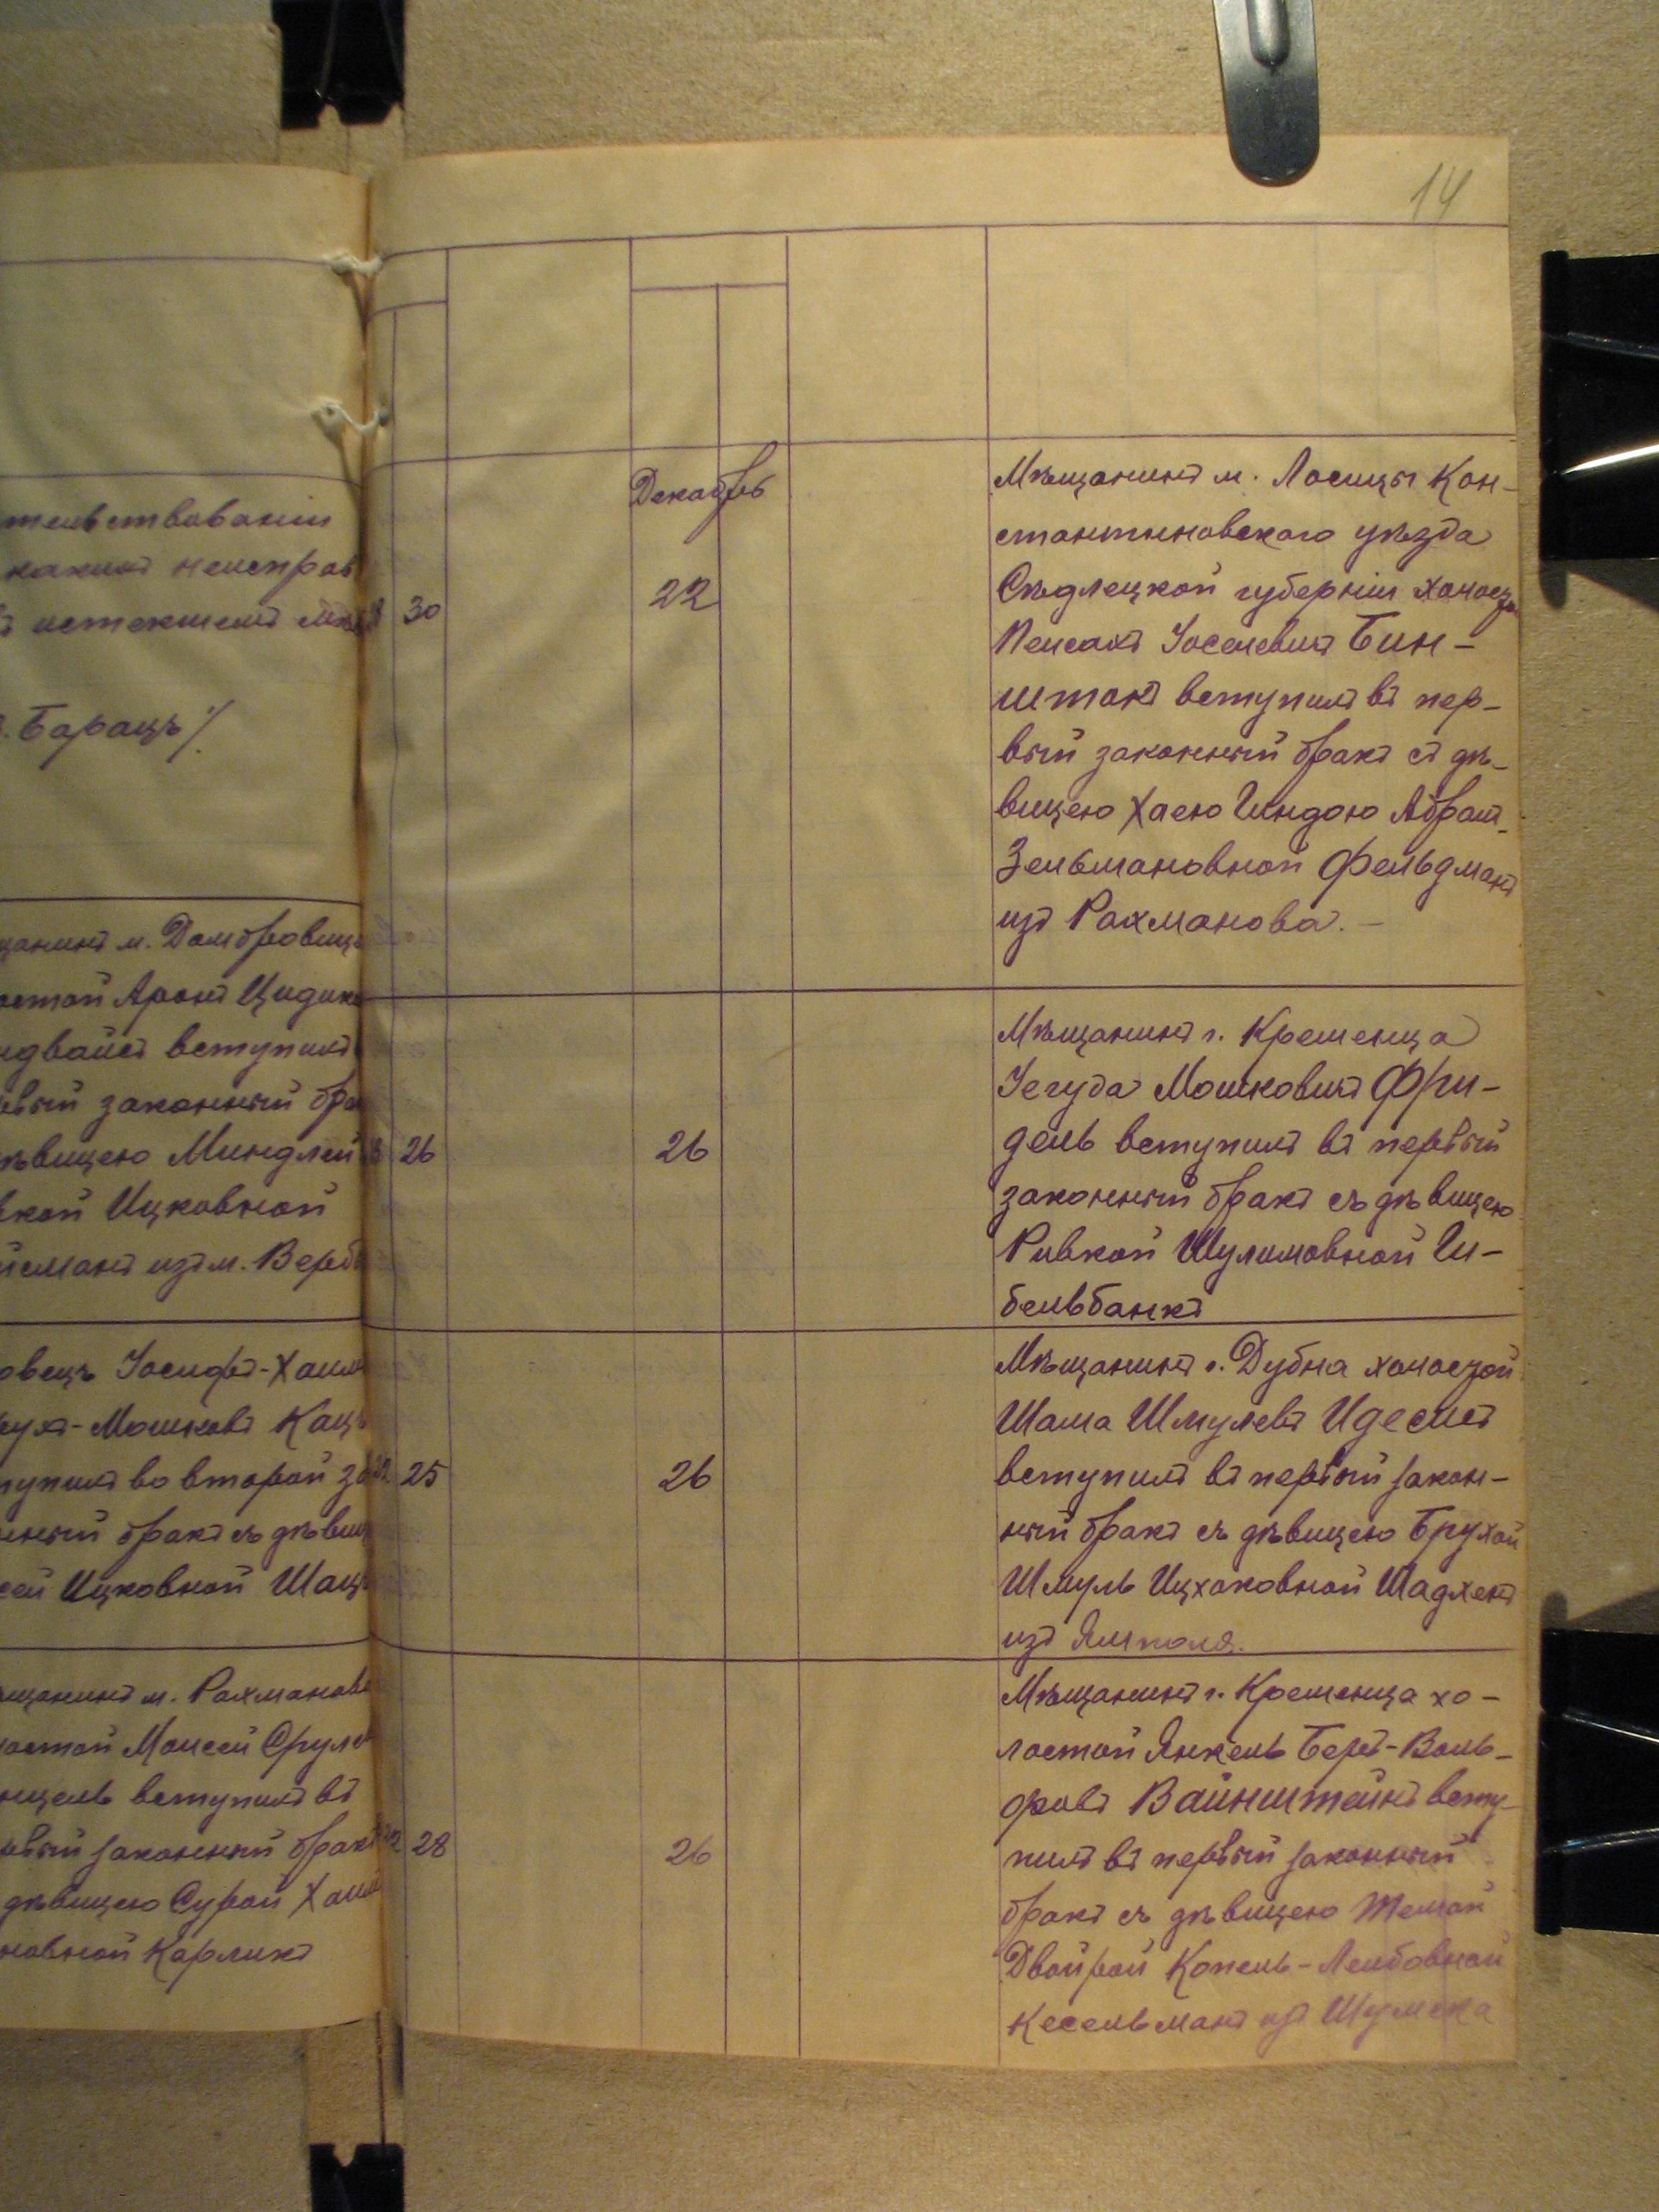 14
тельствованiи
какихъ неисправ
истекшемъ
Барацъ
щанинъ м. Домбровиц
остой Аронъ Цидик
ндвайсъ вступилъ
рвый законный бра
дѣвицею Миндлей
вкой Ицковной
йсманъ изъ м. Верб
овецъ Іосифъ-Хаим
рухъ-Мошковъ Кац
тупилъ во второй за
нный бракъ съ дѣвиц
сей Ицковной Шац
ѣщанинъ м. Рахманова
лостой Моисей Срулев
нцель вступилъ въ
рвый законный бракъ
дѣвицею Сурой Хаим
новной Карликъ
Декабрь
30 22
Мѣщанинъ м. Лосицы Кон-
стантиновскаго уѣзда
Сѣдлецкой губернiи холост
Пейсахъ Іоселевичъ Бин-
штокъ вступилъ въ пер-
вый законный бракъ съ дѣ-
вицею Хаею Гиндою Абрам-
Зельмановной Фельдманъ
изъ Рахманова. -
26 26
Мѣщанинъ г. Кременца
Іегуда Мошковичъ Фри-
дель вступилъ въ первый
законный бракъ съ дѣвицею
Ривкой Шулимовной Ги-
бельбанкъ
25 26
Мѣщанинъ г. Дубна холостой
Шама Шмулевъ Идесисъ
вступилъ въ первый закон-
ный бракъ съ дѣвицею Брухой
Шмуль Ицхоковной Шадхенъ
изъ Ямполя.
28 26
Мѣщанинъ г. Кременца хо-
лостой Янкель Беръ-Воль-
фовъ Вайнштейнъ всту-
пилъ въ первый законный
бракъ съ дѣвицею Темой
Двойрой Копель-Лейбовной
Кесельманъ изъ Шумска